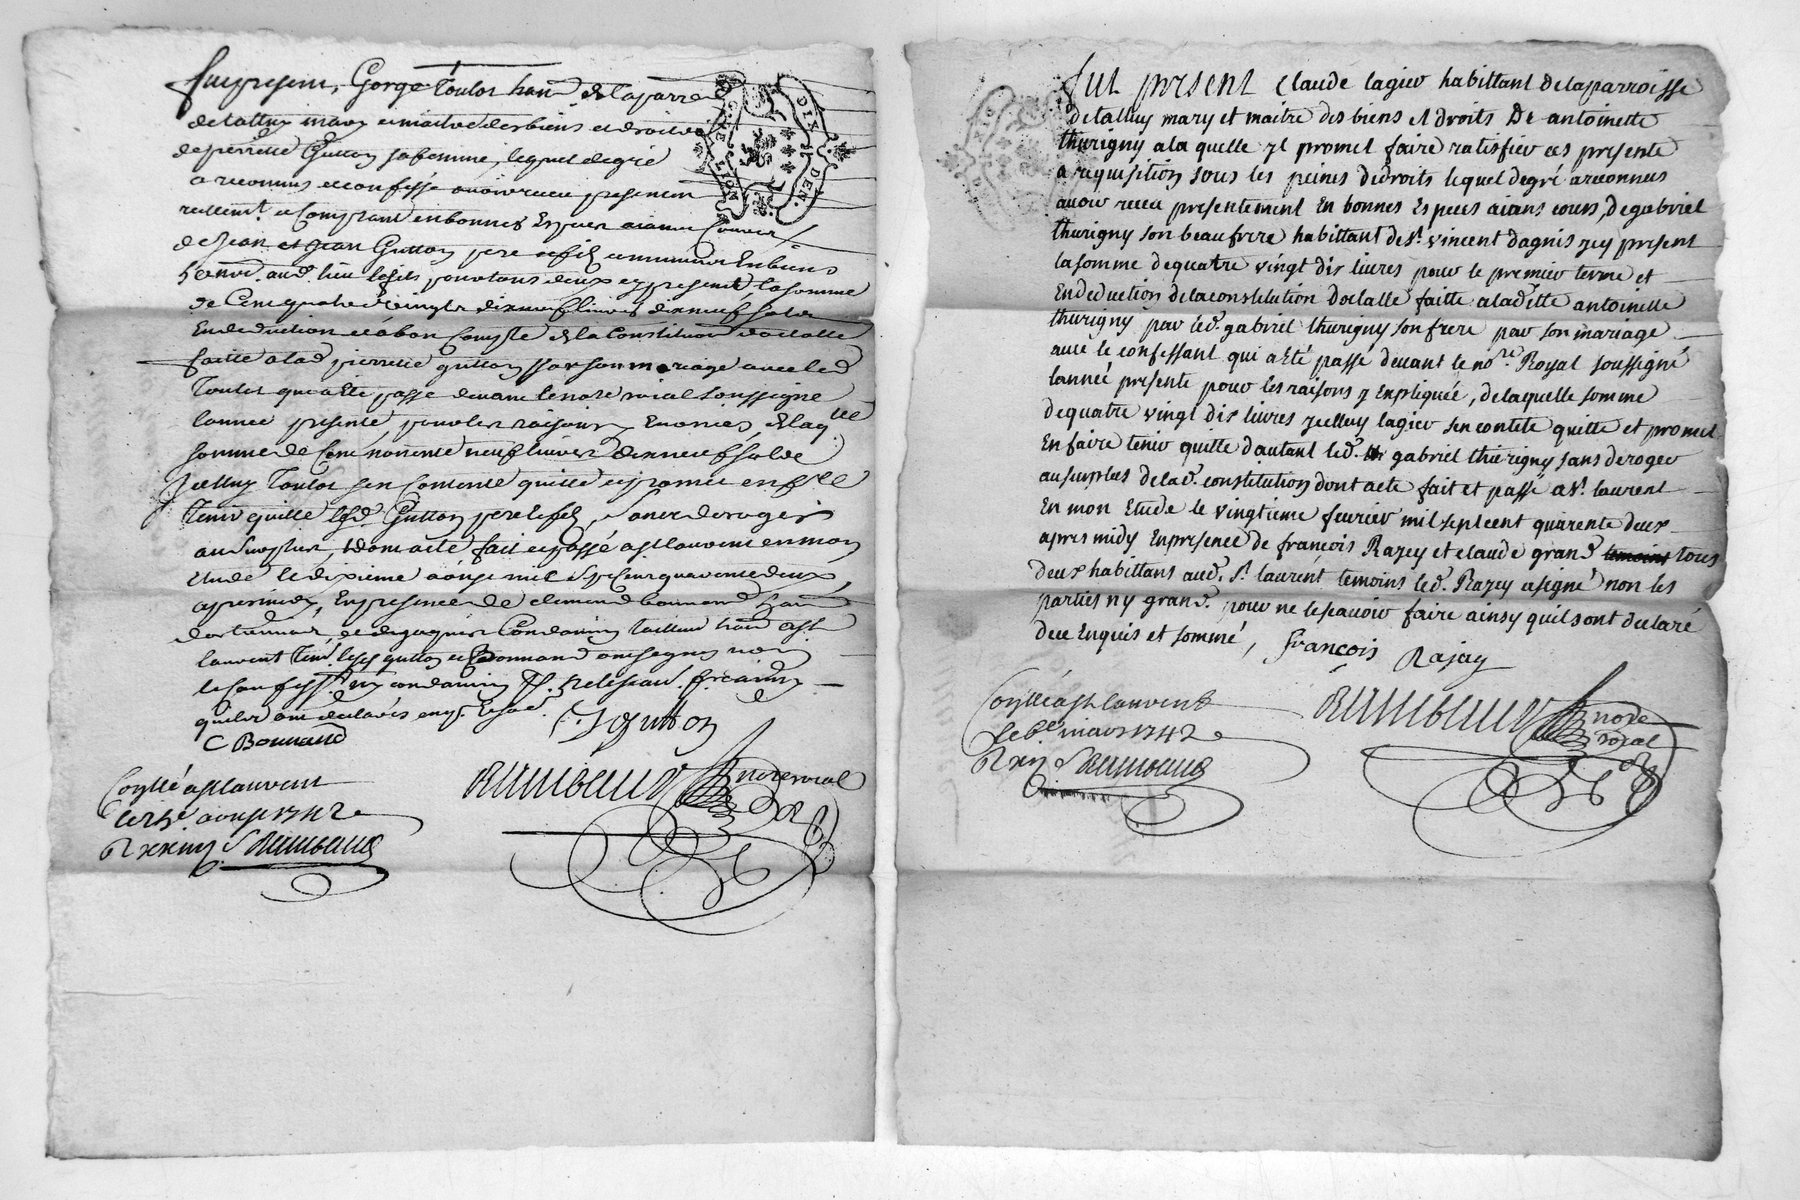 fut present, Gorge Toulot han^t. de la parre
de talluy mary et maitre des biens et droits
de pierrette Gutton sa femme, lequel de gré
a reconnus et confessé avoir receu presentem
reellem^t. et Comptant en bonnes Espeses aiant Cours
de Jean et Jean Gutton pere et fils communs En biens
han^t aud. lieu le fils pour tous deux cy present la somme
de Cent quatre vingts dix neuf livres dix neuf sols
En deduction et a bon Compte de la Constitution dotalle
faitte a lad pierrette gutton par son mariage avec led
Toulot qui a Eté passé devant le no^re roial soussigné
l'année presente, pour les raisons y Enoncés, de laq^lle
somme de Cent nonente neuf livres dix neuf sols
Jcelluy Toulot s'en Contente quitte et promet en f^re
tenir quitte lesd. Gutton pere et fils, sans deroger
au Surplus, dont acte fait et passé a st laurent en mon
Etude le dixieme aoust mil sept cent quarente deux
apres midy, En presence de clement bonnand
et de jaques Condamin tailleur han^t a st
laurent tem. lesd gutton et Bonnand ont signés non
le confess^t. ny condamin p^r. ne le scav. f^re ainsy
qu'ils ont declarés enq^s. et som^é.
C Bonnand
J Gutton
Collé a st laurent
le 21^e aoust 1742
R xxiiij s Raimbaud
Raimbaud no^re roial
DIX DEN.
G. DE LION
fut present Claude lagier habittant de la parroisse
de talluy mary et maitre des biens et droits De antoinette
thurigny a la quelle yl promet faire ratiffier ces presente
a requisition sous les peines de droits lequel de gré a reconnus
avoir receu presentement En bonnes Espeses aians cours, de gabriel
thurigny son beau frere habittant de s^t. vincent dagnis yey present
la somme de quatre vingt dix livres pour le premier terme et
En deduction de la constitution dotalle faitte a ladt^te antoinette
thurigny par led. gabriel thurigny son frere par son mariage
avec le confessant qui a eté passé devant le no^re. Royal soussigné
lanneé presente pour les raisons y Expliquéé, de laquelle somme
de quatre vingt dix livres ycelluy lagier s'en contente quitte et promet
En faire tenir quitte dautant led. gabriel thurigny sans deroger
au surplus de lad. constitution dont acte fait et passé a s^t. laurent
En mon Etude le vingtieme fevrier mil sept cent quarente deux
apres midy En presence de françois Razey et claude grand temoins tous
deux habittans aud. s^t. laurent temoins led. Razey a signé non les
parties ny grand. pour ne le scavoir faire ainsy quil sont declaré
dece Enquis et sommé,
françois Rajay
Collé a st laurent
le 6^e mars 1742
R xij s Raimbaud
Raimbaud no^re royal